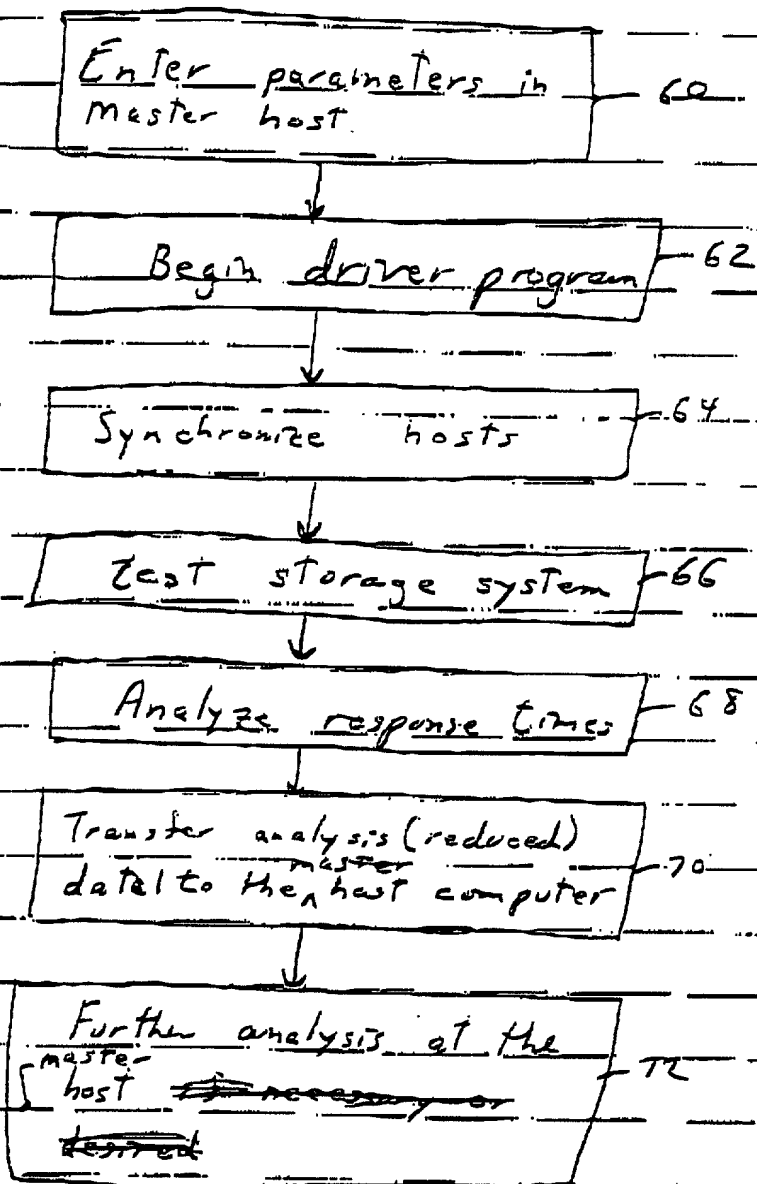 Enter parameters in 60
master host
Begin driver program 62
Synchronize hosts 64
Test storage system 66
Analyze response times 68
Transfer analysis (reduced)
master 70
data to the ^ host computer
Further analysis at the
master 72
host if necessary or
desired